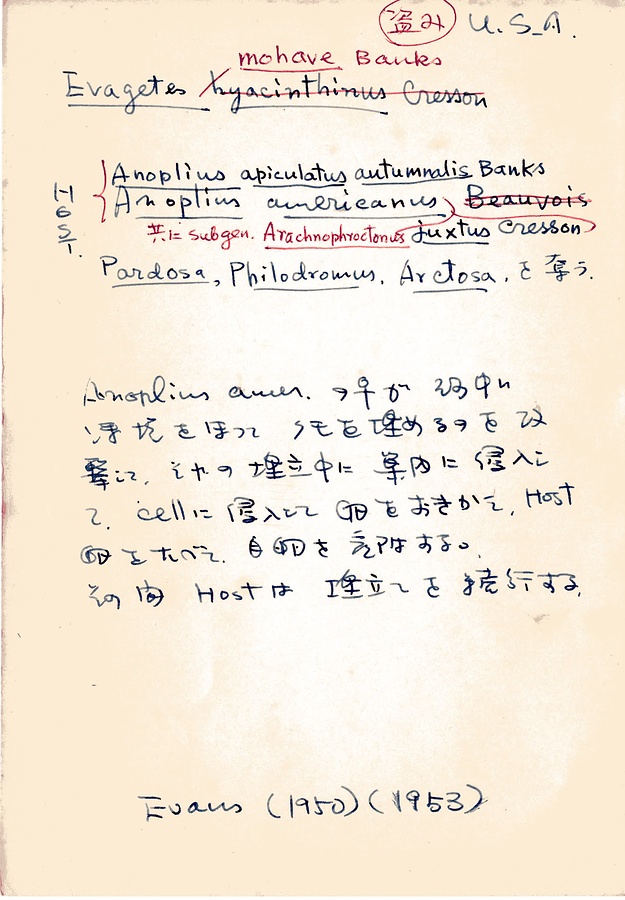 盗み U.S.A.
mohave Banks
Evagetes hyacinthinus Cresson
Anoplius apiculatus autumnalis Banks
HOST. Anoplius americanus Beauvois
共に subgen. Arachnophroctonus juxtus Cresson
Pardosa, Philodromus, Arctosa, を奪う.
Anoplius amer. の早が 砂中に
坑をほって クモを埋めるのを攻
撃して, その埋立中に 巣内に侵入し
て, cellに侵入して 卵をおきかえ, Host
卵をたべて, 自卵を するo.
その間 Hostは 埋立てを続行する.
Evans (1950) (1953)